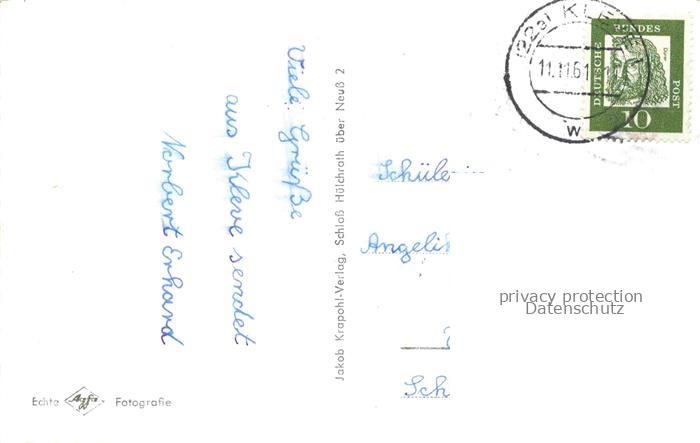 Viele Grüße
aus Kleve sendet
Norbert Erhard
Jakob Krapohl-Verlag, Schloß Hülchrath über Neuß 2
Echte Agfa Fotografie
(22a) KLEVE
11.11.61
W
DEUTSCHE BUNDES POST
Dürer
10
Schüle
Angeli
Sch
privacy protection
Datenschutz